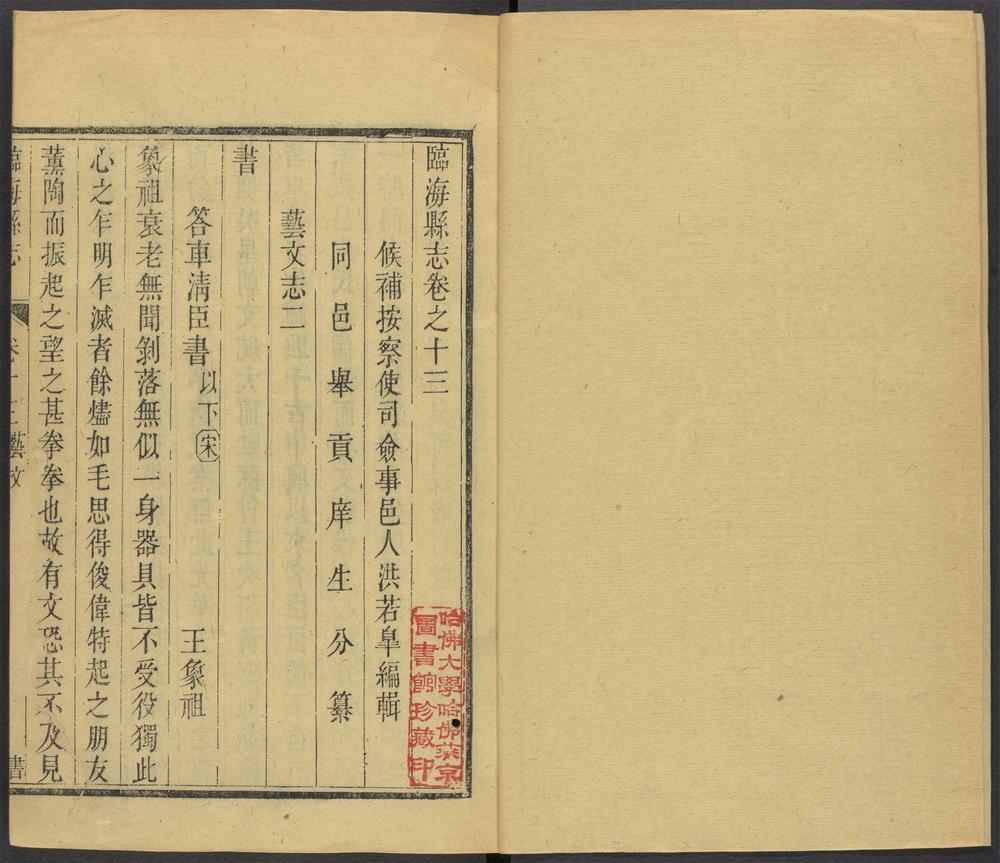 臨海縣志卷之十三
候補按察使司僉事邑人洪若皐編輯
同邑舉貢庠生分纂
藝文志二
書
答車清臣書 以下宋 王象祖
象祖衰老無聞剝落無似一身器具皆不受役獨此
心之乍明乍滅者餘燼如毛思得俊偉特起之朋友
薰陶而振起之望之甚拳拳也故有文恐其不及見
臨海縣志 卷十三藝文 書
哈佛大學哈佛燕京
圖書館珍藏印